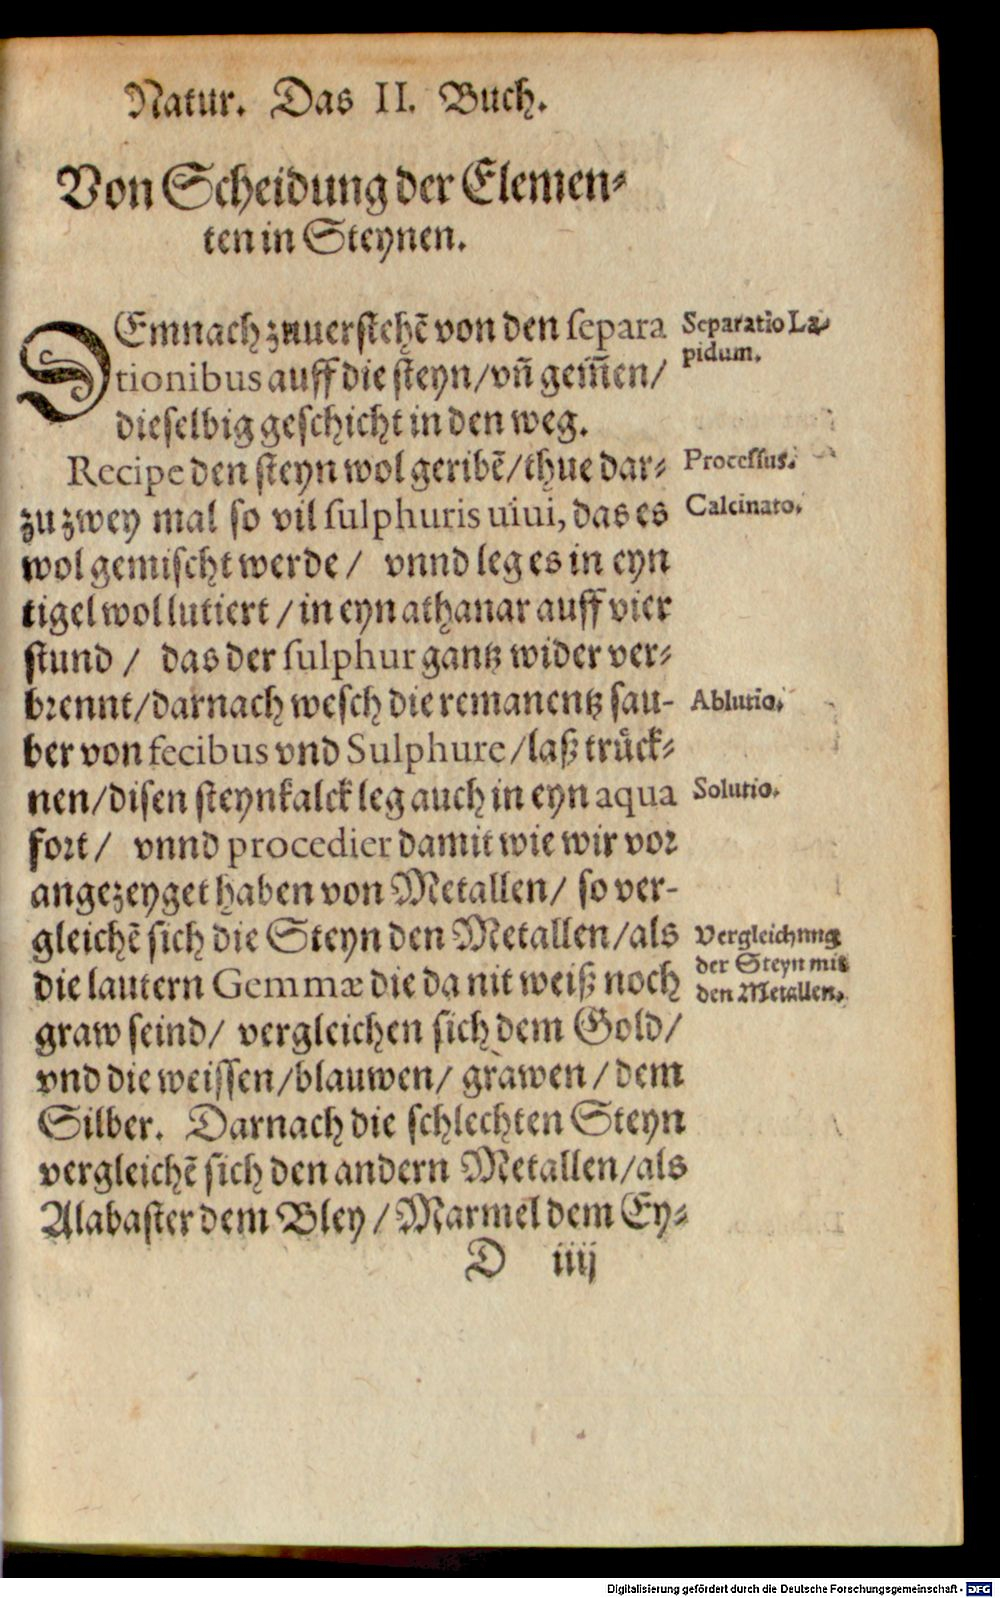 Natur. Das II. Buch.
Von Scheidung der Elemen⸗
ten in Steynen.
DEmnach zuuerstehē von den separa
tionibus auff die steyn/vñ gem̃en/
dieselbig geschicht in den weg.
Separatio La⸗
pidum.
Recipe den steyn wol geribē/thue dar⸗
zu zwey mal so vil sulphuris uiui, das es
wol gemischt werde/ vnnd leg es in eyn
tigel wol lutiert/in eyn athanar auff vier
stund/ das der sulphur gantz wider ver⸗
brennt/darnach wesch die remanentz sau-
ber von fecibus vnd Sulphure/laß truͤck⸗
nen/disen steynkalck leg auch in eyn aqua
fort/ vnnd procedier damit wie wir vor
angezeyget haben von Metallen/ so ver-
gleichē sich die Steyn den Metallen/als
die lautern Gemmæ die da nit weiß noch
graw seind/ vergleichen sich dem Gold/
vnd die weissen/blauwen/ grawen/dem
Silber. Darnach die schlechten Steyn
vergleichē sich den andern Metallen/als
Alabaster dem Bley/Marmel dem Ey⸗
Processus.
Calcinato.
Ablutio.
Solutio.
Vergleichung
der Steyn mit
den Metallen.
D iiij
Digitalisierung gefördert durch die Deutsche Forschungsgemeinschaft - DFG